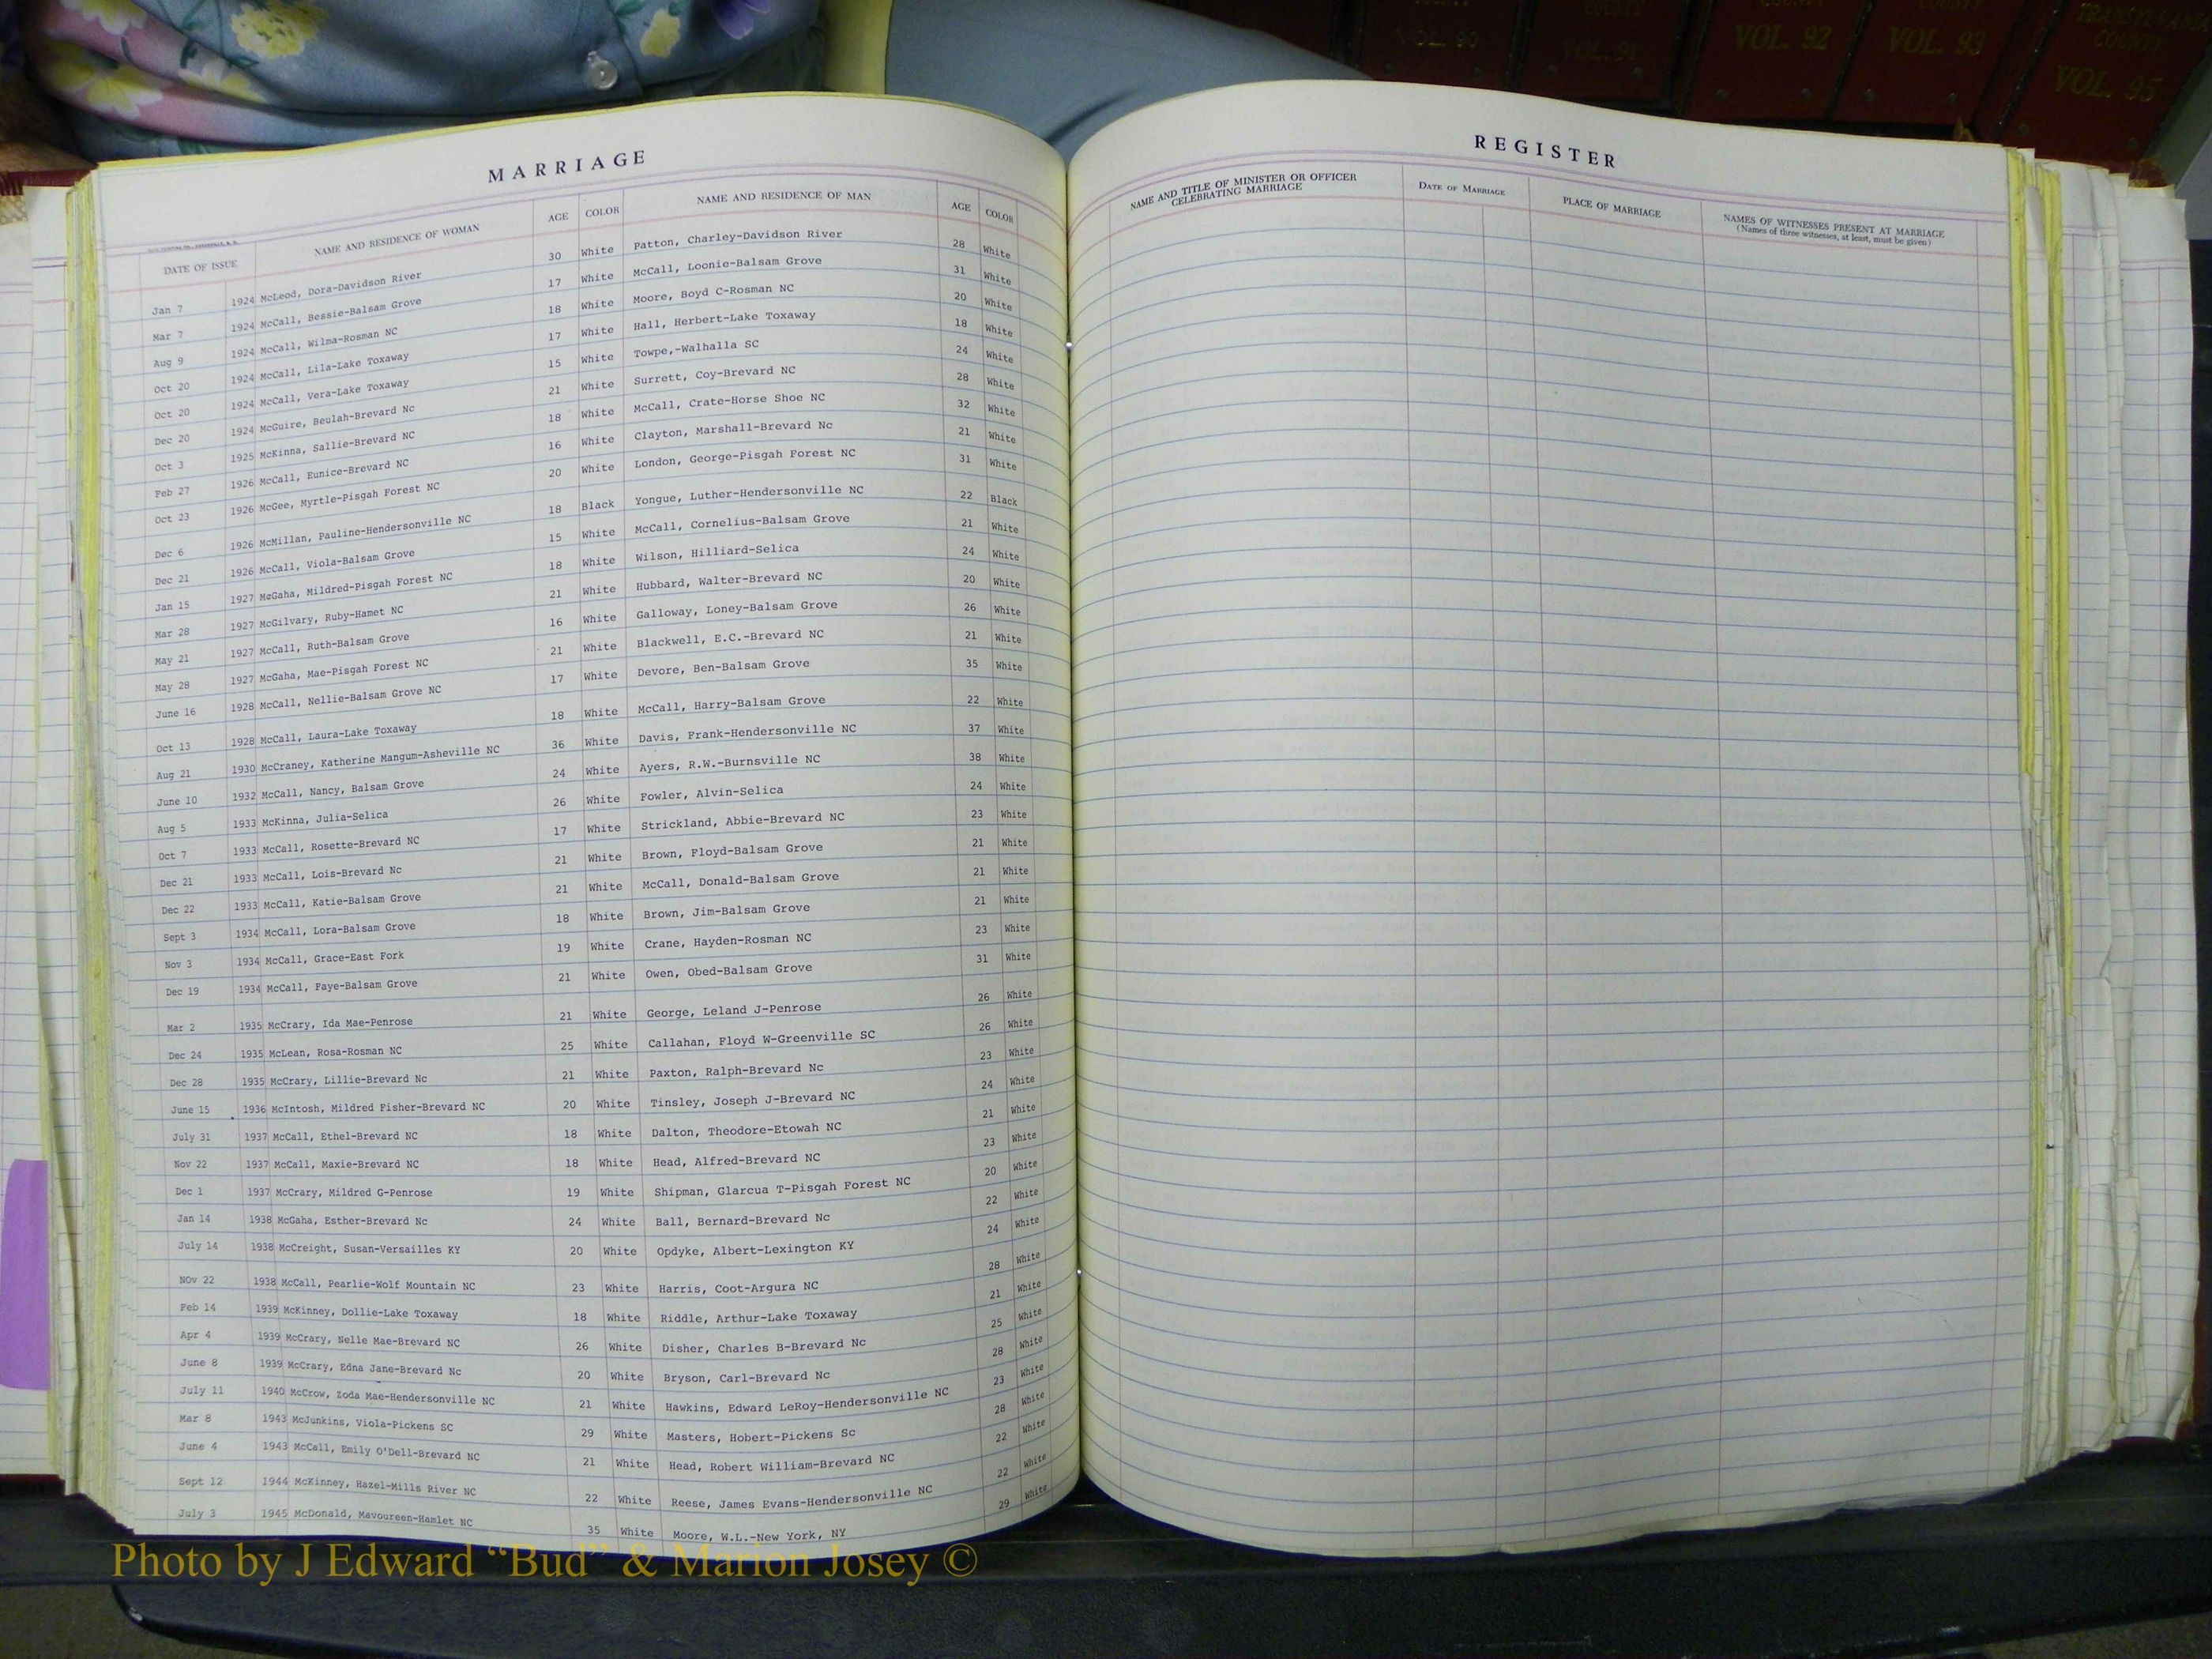 COUNTY VOL. 90
COUNTY VOL. 91
COUNTY VOL. 92
COUNTY VOL. 93
TRANSYLVANIA COUNTY VOL. 95
MARRIAGE
DATE OF ISSUE NAME AND RESIDENCE OF WOMAN AGE COLOR NAME AND RESIDENCE OF MAN AGE COLOR
Jan 7 1924 McLeod, Dora-Davidson River 30 White Patton, Charley-Davidson River 28 White
Mar 7 1924 McCall, Bessie-Balsam Grove 17 White McCall, Loonie-Balsam Grove 31 White
Aug 9 1924 McCall, Wilma-Rosman NC 18 White Moore, Boyd C-Rosman NC 20 White
Oct 20 1924 McCall, Lila-Lake Toxaway 17 White Hall, Herbert-Lake Toxaway 18 White
Oct 20 1924 McCall, Vera-Lake Toxaway 15 White Towpe,-Walhalla SC 24 White
Dec 20 1924 McGuire, Beulah-Brevard Nc 21 White Surrett, Coy-Brevard NC 28 White
Oct 3 1925 McKinna, Sallie-Brevard NC 18 White McCall, Crate-Horse Shoe NC 32 White
Feb 27 1926 McCall, Eunice-Brevard NC 16 White Clayton, Marshall-Brevard Nc 21 White
Oct 23 1926 McGee, Myrtle-Pisgah Forest NC 20 White London, George-Pisgah Forest NC 31 White
Dec 6 1926 McMillan, Pauline-Hendersonville NC 18 Black Yongue, Luther-Hendersonville NC 22 Black
Dec 21 1926 McCall, Viola-Balsam Grove 15 White McCall, Cornelius-Balsam Grove 21 White
Jan 15 1927 McGaha, Mildred-Pisgah Forest NC 18 White Wilson, Hilliard-Selica 24 White
Mar 28 1927 McGilvary, Ruby-Hamet NC 21 White Hubbard, Walter-Brevard NC 20 White
May 21 1927 McCall, Ruth-Balsam Grove 16 White Galloway, Loney-Balsam Grove 26 White
May 28 1927 McGaha, Mae-Pisgah Forest NC 21 White Blackwell, E.C.-Brevard NC 21 White
June 16 1928 McCall, Nellie-Balsam Grove NC 17 White Devore, Ben-Balsam Grove 35 White
Oct 13 1928 McCall, Laura-Lake Toxaway 18 White McCall, Harry-Balsam Grove 22 White
Aug 21 1930 McCraney, Katherine Mangum-Asheville NC 36 White Davis, Frank-Hendersonville NC 37 White
June 10 1932 McCall, Nancy, Balsam Grove 24 White Ayers, R.W.-Burnsville NC 38 White
Aug 5 1933 McKinna, Julia-Selica 26 White Fowler, Alvin-Selica 24 White
Oct 7 1933 McCall, Rosette-Brevard NC 17 White Strickland, Abbie-Brevard NC 23 White
Dec 21 1933 McCall, Lois-Brevard Nc 21 White Brown, Floyd-Balsam Grove 21 White
Dec 22 1933 McCall, Katie-Balsam Grove 21 White McCall, Donald-Balsam Grove 21 White
Sept 3 1934 McCall, Lora-Balsam Grove 18 White Brown, Jim-Balsam Grove 21 White
Nov 3 1934 McCall, Grace-East Fork 19 White Crane, Hayden-Rosman NC 23 White
Dec 19 1934 McCall, Faye-Balsam Grove 21 White Owen, Obed-Balsam Grove 31 White
Mar 2 1935 McCrary, Ida Mae-Penrose 21 White George, Leland J-Penrose 26 White
Dec 24 1935 McLean, Rosa-Rosman NC 25 White Callahan, Floyd W-Greenville SC 26 White
Dec 28 1935 McCrary, Lillie-Brevard Nc 21 White Paxton, Ralph-Brevard Nc 23 White
June 15 1936 McIntosh, Mildred Fisher-Brevard NC 20 White Tinsley, Joseph J-Brevard NC 24 White
July 31 1937 McCall, Ethel-Brevard NC 18 White Dalton, Theodore-Etowah NC 21 White
Nov 22 1937 McCall, Maxie-Brevard NC 18 White Head, Alfred-Brevard NC 23 White
Dec 1 1937 McCrary, Mildred G-Penrose 19 White Shipman, Glarcua T-Pisgah Forest NC 20 White
Jan 14 1938 McGaha, Esther-Brevard Nc 24 White Ball, Bernard-Brevard Nc 22 White
July 14 1938 McCreight, Susan-Versailles KY 20 White Opdyke, Albert-Lexington KY 24 White
NOv 22 1938 McCall, Pearlie-Wolf Mountain NC 23 White Harris, Coot-Argura NC 28 White
Feb 14 1939 McKinney, Dollie-Lake Toxaway 18 White Riddle, Arthur-Lake Toxaway 21 White
Apr 4 1939 McCrary, Nelle Mae-Brevard NC 26 White Disher, Charles B-Brevard Nc 25 White
June 8 1939 McCrary, Edna Jane-Brevard Nc 20 White Bryson, Carl-Brevard Nc 28 White
July 11 1940 McCrow, Zoda Mae-Hendersonville NC 21 White Hawkins, Edward LeRoy-Hendersonville NC 23 White
Mar 8 1943 McJunkins, Viola-Pickens SC 29 White Masters, Hobert-Pickens Sc 28 White
June 4 1943 McCall, Emily O'Dell-Brevard NC 21 White Head, Robert William-Brevard NC 22 White
Sept 12 1944 McKinney, Hazel-Mills River NC 22 White Reese, James Evans-Hendersonville NC 22 White
July 3 1945 McDonald, Mavoureen-Hamlet NC 35 White Moore, W.L.-New York, NY 29 White
REGISTER
NAME AND TITLE OF MINISTER OR OFFICER CELEBRATING MARRIAGE DATE OF MARRIAGE PLACE OF MARRIAGE NAMES OF WITNESSES PRESENT AT MARRIAGE
(Names of three witnesses, at least, must be given)
Photo by J Edward “Bud” & Marion Josey ©